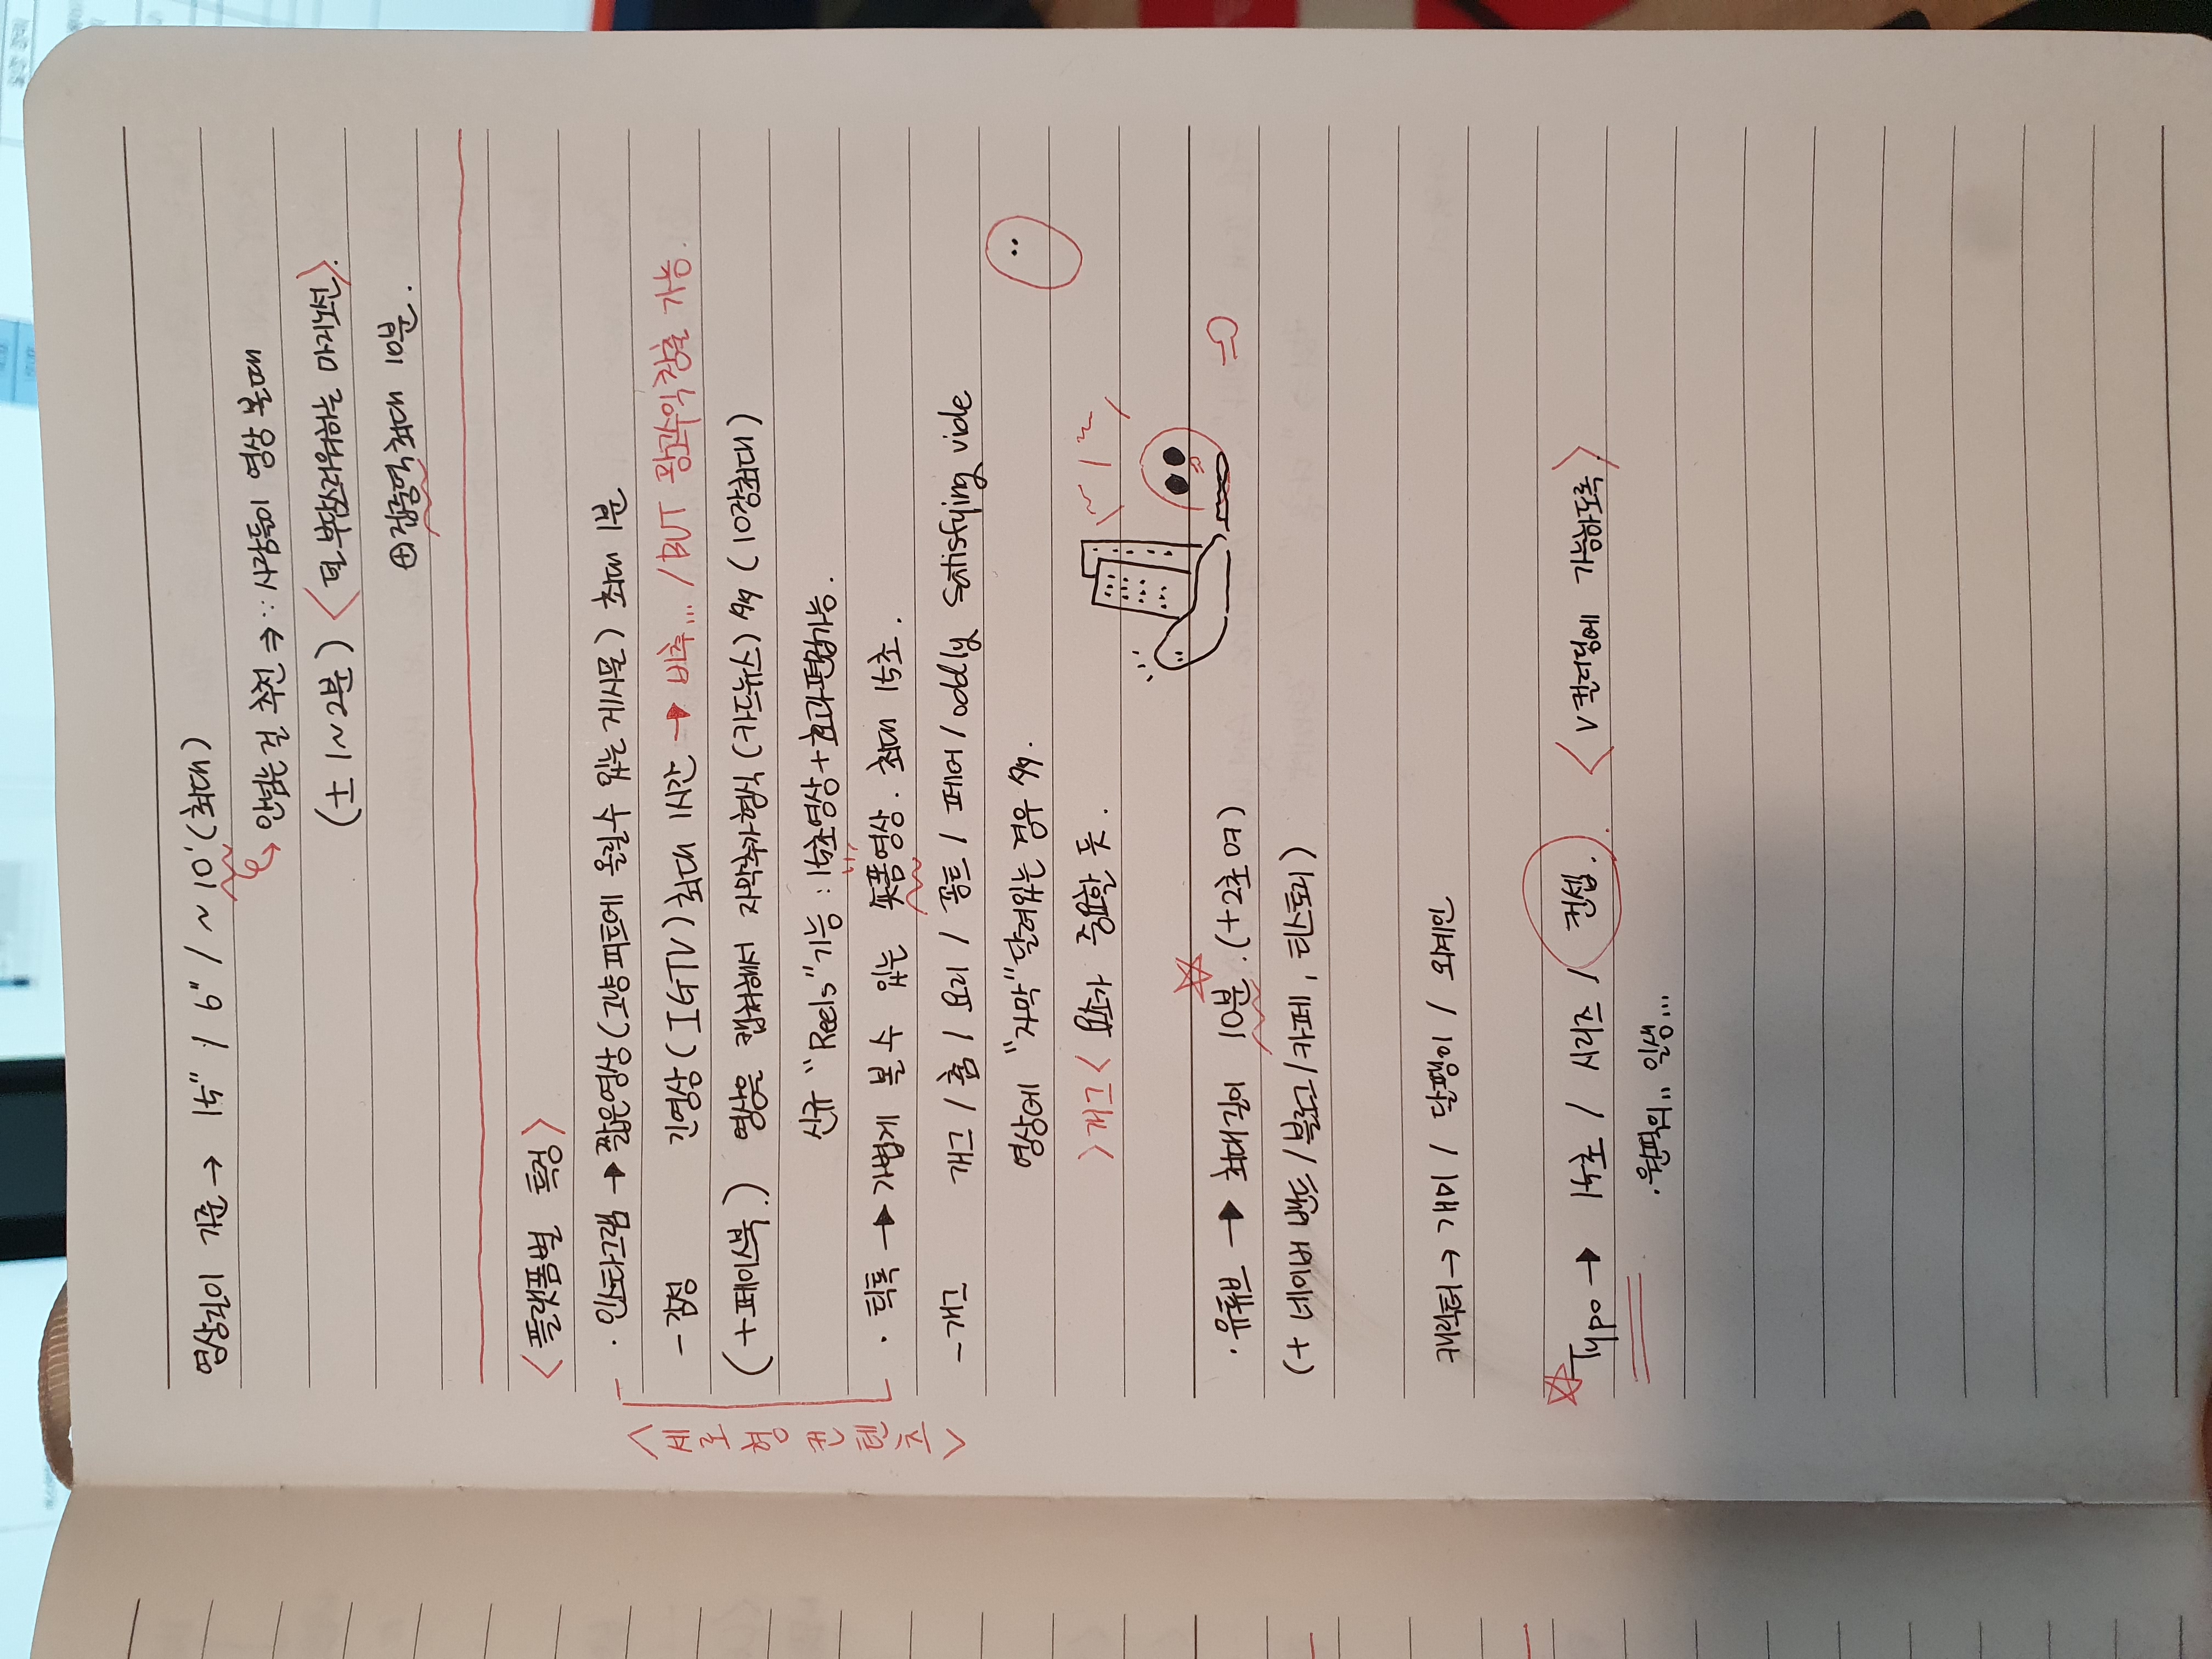 영상길이 기준 → 15" / 6" / ~ 10' (최대)
안넘는 걸 추천 ⇒ ∵ 사람들이 영상 볼때
(± 1~2분) <덜 부담스러워하는 마지노선>.
⊕ 집중력 최대 10분.
<플랫폼별 특징>
<세로형 컨텐츠>
· 인스타그램 → 짧은영상 (그냥 피드에 올릴수 있는 게시물) 최대 1분
- 감성 긴영상 (IGTV) 최대 1시간 → 비추... / BUT 광고수익창출 가능.
(+페이스북.) 영상을 캡쳐해서 자막추가형식 (카드뉴스) 多 (10장최대)
신규 "Reels" 기능 : 15초영상 + 효과편집가능.
· 틱톡 → 가볍게 볼 수 있는 숏폼영상. 최대 15초.
- 개그 개그 / 춤 / 요리 / 꽁트 / 페어 / oddly satisfying vide
영상에 "자막" 달려있는 경우 多.
>개그< 요소가 중요할 듯.
· 유튜브 → 최대길이 10분. (+2초여)
(+ 네이버 밴드 / 블로그 / 카페, 티스토리)
캐릭터 → 개미 / 달팽이 / 외계인
Typo → 15초 / 시리즈 / 컨셉. <V컬러링에 가능하도록>
· 원픽의.. 일생...